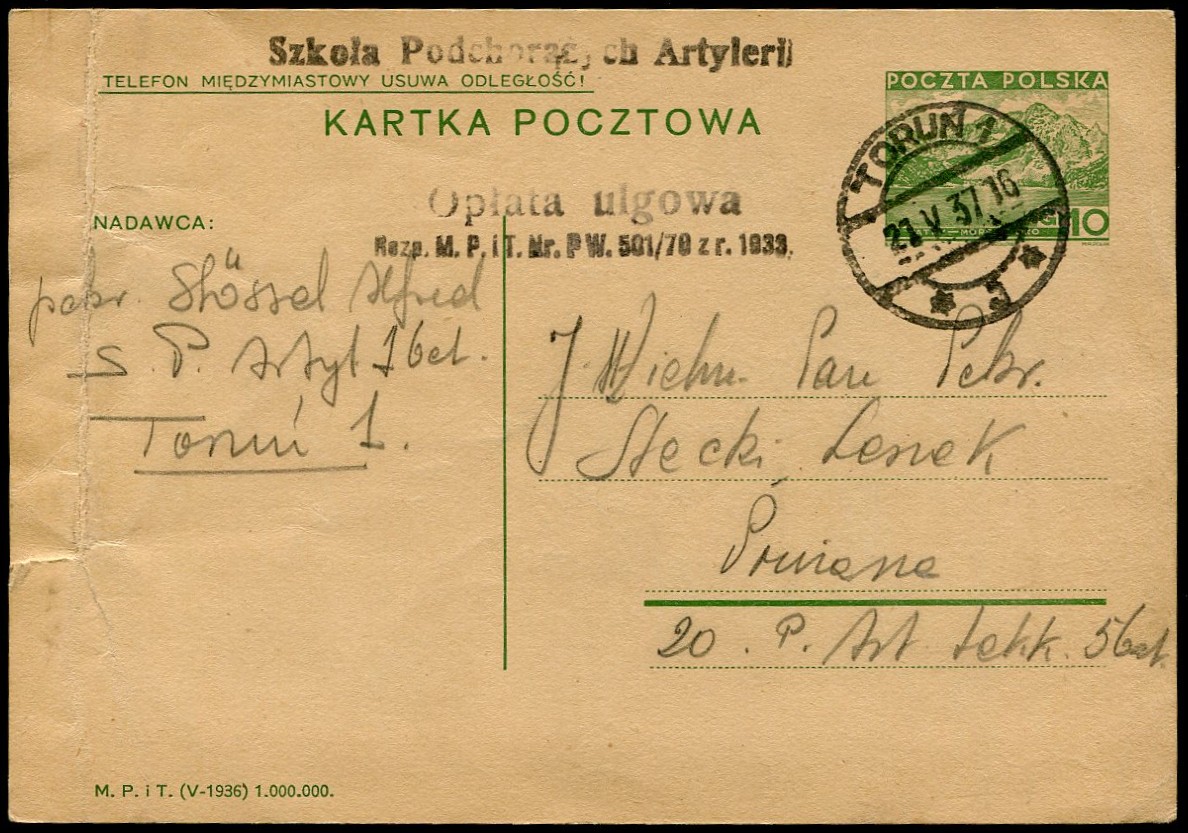 Szkoła Podchorążych Artylerii
TELEFON MIĘDZYMIASTOWY USUWA ODLEGŁOŚĆ!
KARTKA POCZTOWA
POCZTA POLSKA
10
TORUŃ 1
V 37 16
Opłata ulgowa
Rozp. M. P. i T. Nr. PW. 501/70 z r. 1933.
NADAWCA:
Stössel Alfred
S. P. Artyl 1 bat.
Toruń 1.
J. Wielm. Pan Pchr.
Stecki Leszek
20. P. Art. Lekk. 5 bat.
M. P. i T. (V-1936) 1.000.000.